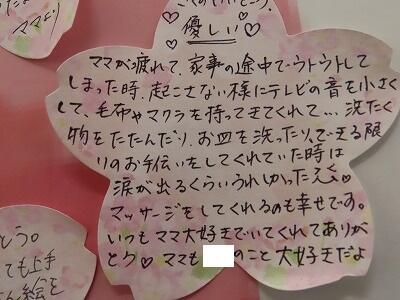 優しい
ママが疲れて、家事の途中でウトウトして
しまった時、起こさない様にテレビの音を小さく
して、毛布やマクラを持ってきてくれて…、洗たく
物をたたんだり、お皿を洗ったり、できる限
りのお手伝いをしてくれていた時は
涙が出るくらいうれしかった
マッサージをしてくれるのも幸せです。
いつもママ大好きでいてくれてありが
とう♡ ママも のこと大好きだよ
ママより
とう。
ても上手
さん絵を